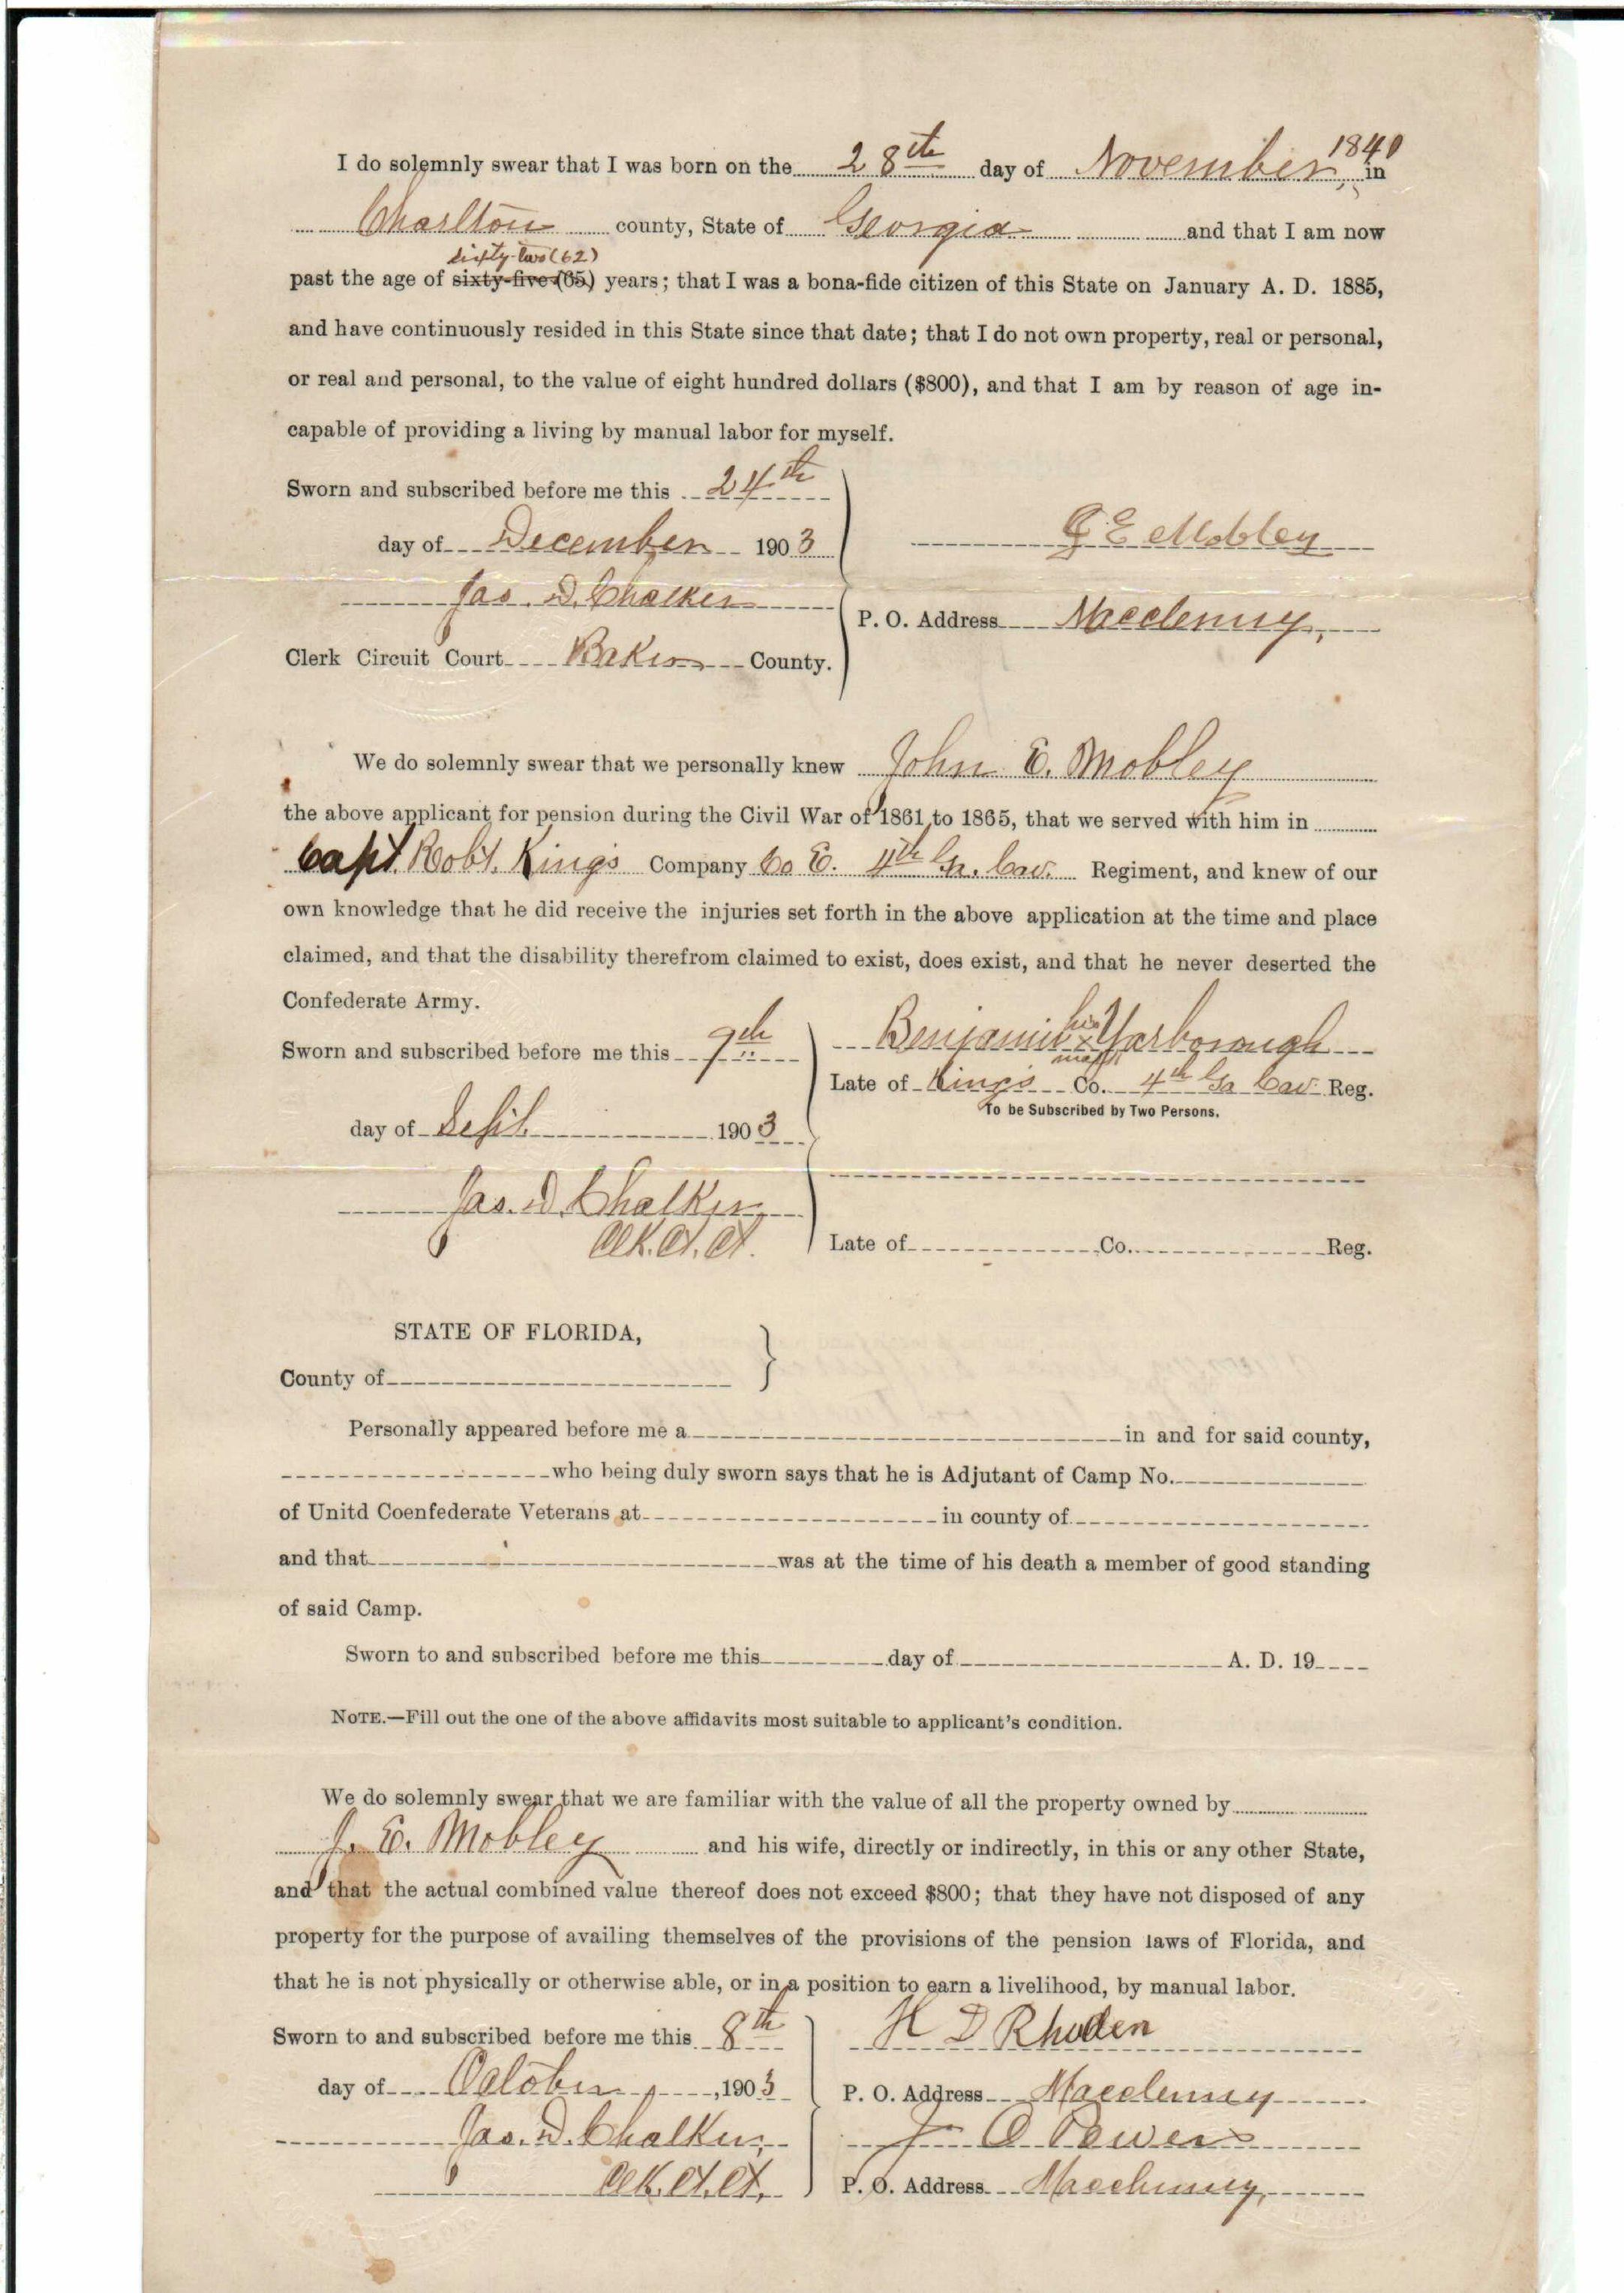 I do solemnly swear that I was born on the 28th day of November, 1840 in
Charlton county, State of Georgia and that I am now
sixty-two (62)
past the age of sixty-five (65) years; that I was a bona-fide citizen of this State on January A. D. 1885,
and have continuously resided in this State since that date; that I do not own property, real or personal,
or real and personal, to the value of eight hundred dollars ($800), and that I am by reason of age in-
capable of providing a living by manual labor for myself.
Sworn and subscribed before me this 24th
day of December 1903
J E Mobley
Jas. D. Chalker
P. O. Address Macclenny,
Clerk Circuit Court Baker County.
We do solemnly swear that we personally knew John E. Mobley
the above applicant for pension during the Civil War of 1861 to 1865, that we served with him in
Capt. Robt. King's Company Co E. 4th Ga. Cav. Regiment, and knew of our
own knowledge that he did receive the injuries set forth in the above application at the time and place
claimed, and that the disability therefrom claimed to exist, does exist, and that he never deserted the
Confederate Army.
Sworn and subscribed before me this 9th
Benjamin his x mark Yarborough
Late of King's Co. 4th Ga Cav. Reg.
To be Subscribed by Two Persons.
day of Sept. 1903
Jas. D. Chalker,
Clk. Ct. Ct.
Late of Co. Reg.
STATE OF FLORIDA,
County of
Personally appeared before me a in and for said county,
who being duly sworn says that he is Adjutant of Camp No.
of Unitd Coenfederate Veterans at in county of
and that was at the time of his death a member of good standing
of said Camp.
Sworn to and subscribed before me this day of A. D. 19
NOTE.—Fill out the one of the above affidavits most suitable to applicant's condition.
We do solemnly swear that we are familiar with the value of all the property owned by
J. E. Mobley and his wife, directly or indirectly, in this or any other State,
and that the actual combined value thereof does not exceed $800; that they have not disposed of any
property for the purpose of availing themselves of the provisions of the pension laws of Florida, and
that he is not physically or otherwise able, or in a position to earn a livelihood, by manual labor.
Sworn to and subscribed before me this 8th
H D Rhoden
day of October, 1903
P. O. Address Macclenny
Jas. D. Chalker,
J O Powers
Clk. Ct. Ct.
P. O. Address Macclenny,